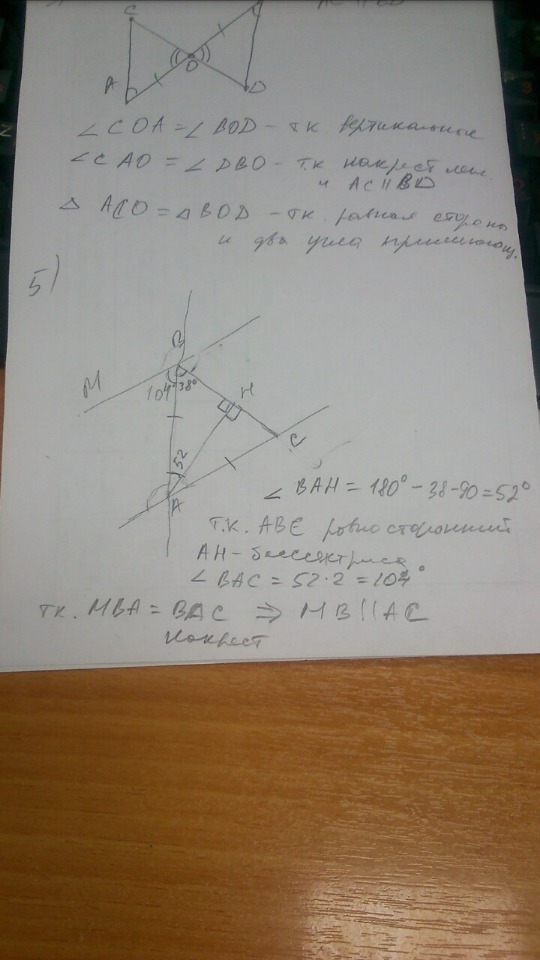 AC || BD
C
A
O
D
∠COA = ∠BOD - т.к. вертикальные
∠CAO = ∠DBO - т.к. накрест леж.
и AC || BD
△ ACO = △ BOD - т.к. равная сторона
и два угла прилежающ.
5)
B
M
104° 38°
H
C
52
A
∠ BAH = 180° - 38 - 90 = 52°
т.к. ABC равносторонний
AH - биссектриса
∠ BAC = 52 · 2 = 104°
тк. MBA = BAC ⇒ MB || AC
накрест